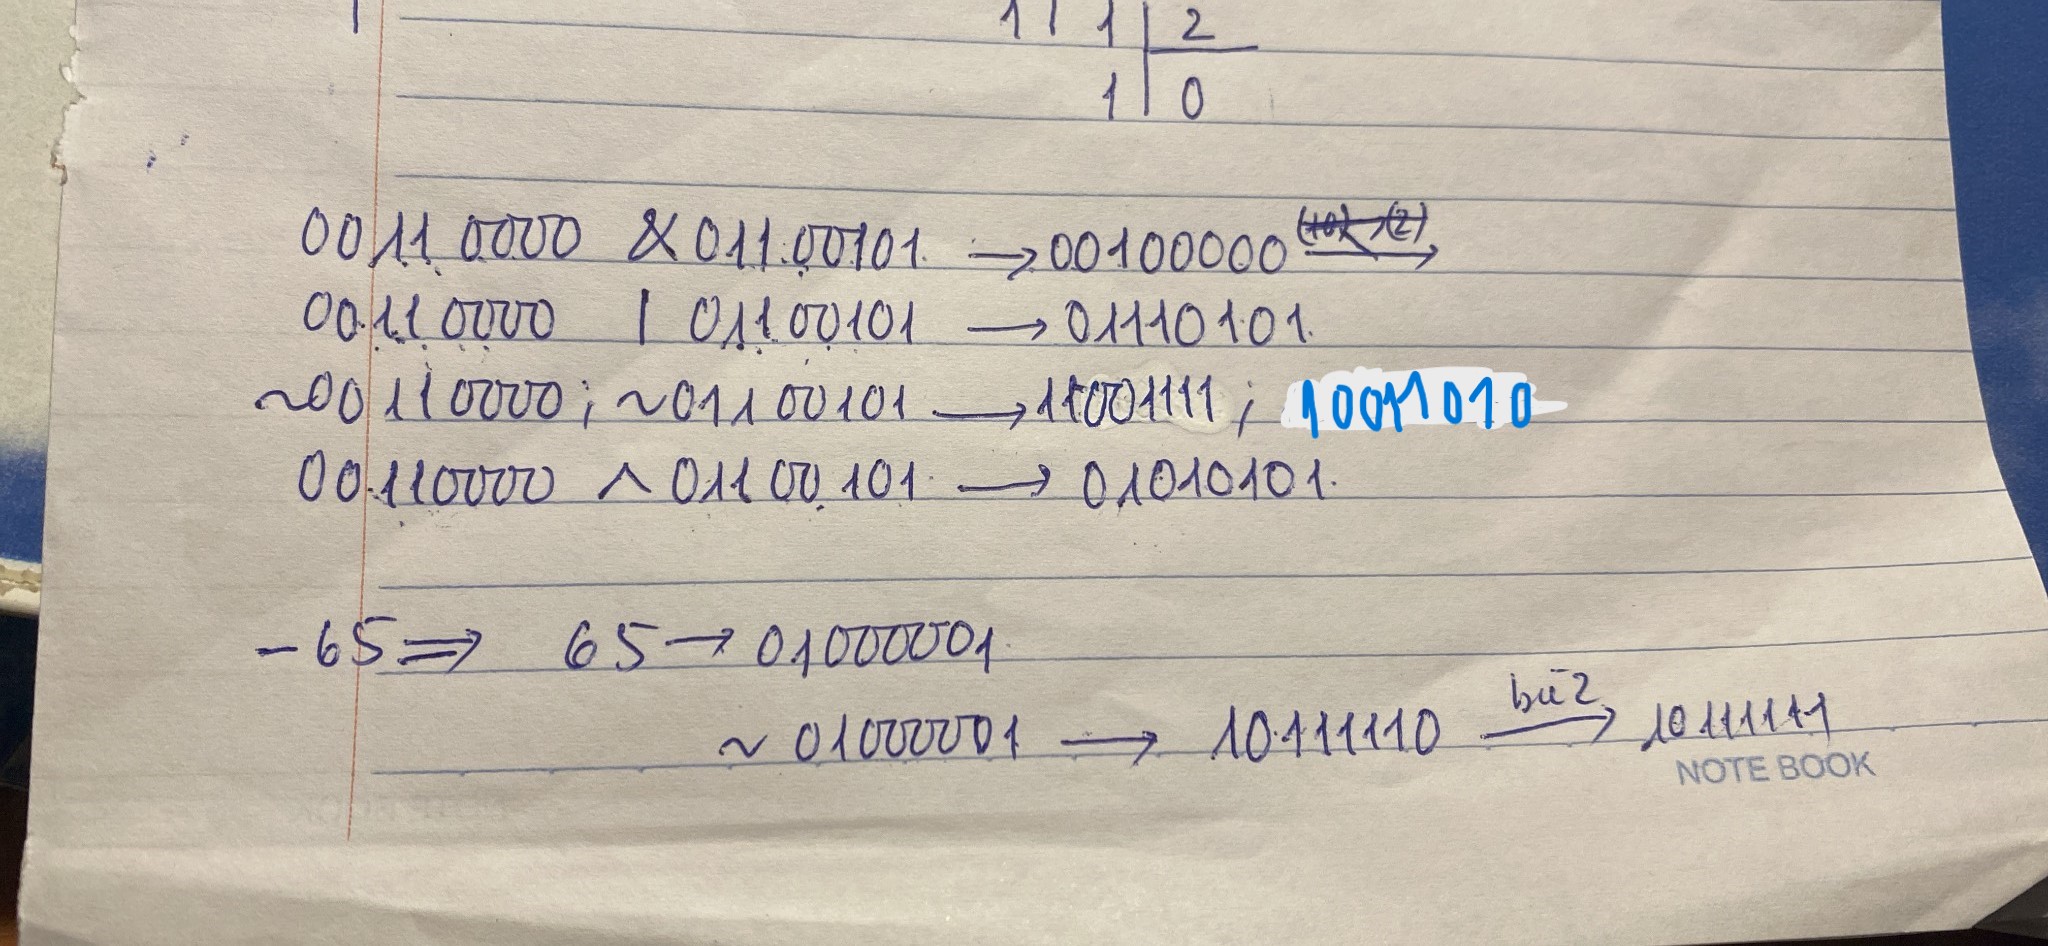 1 1 1 | 2
1 | 0
00110000 & 01100101 → 00100000 →
00110000 | 01100101 → 01110101.
~00110000; ~01100101 → 11001111; 10011010
00110000 ^ 01100101 → 01010101.
-65 ⇒ 65 → 01000001.
~ 01000001 → 10111110 bù 2 → 10111111
NOTE BOOK